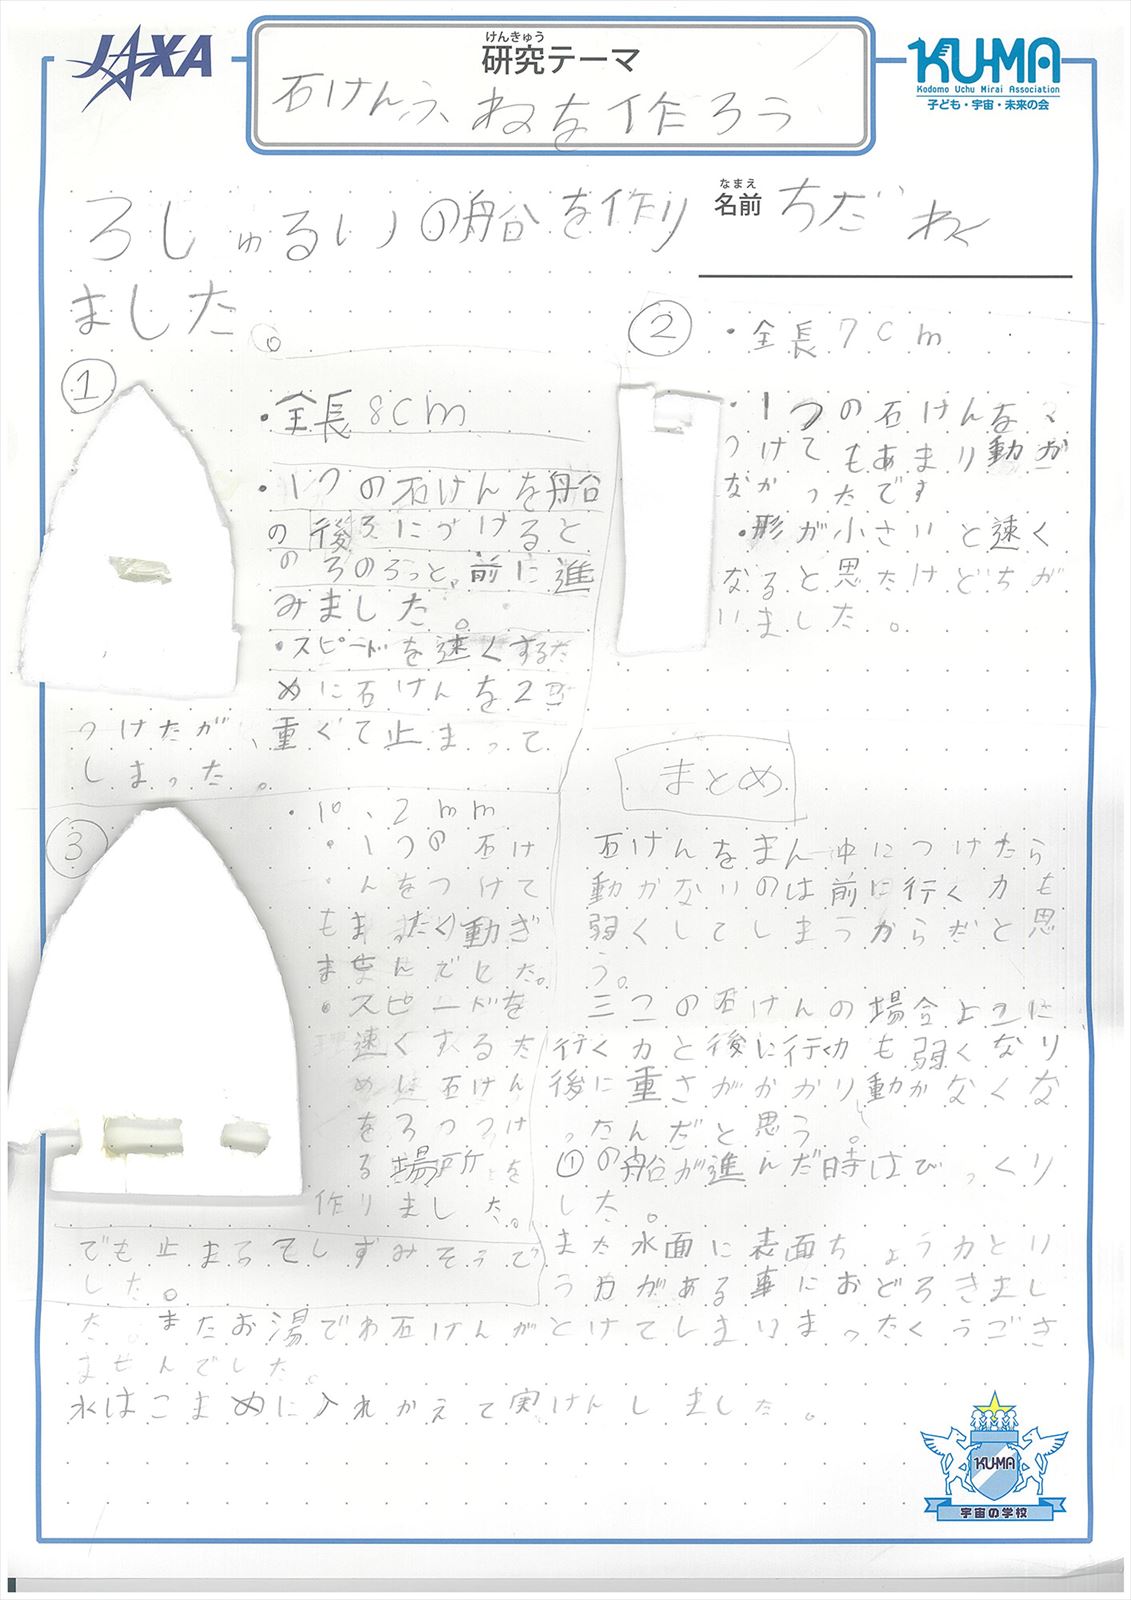 JAXA
けんきゅう
研究テーマ
KU-MA
Kodomo Uchu Mirai Association
子ども・宇宙・未来の会
石けんふねを作ろう
なまえ
名前
ちだ
3しゅるいの船を作り
ました。
①
・全長8cm
・1つの石けんを船
の後ろにつけると
のろのろっと、前に進
みました。
・スピードを速くするた
めに石けんを2こ
つけたが、重くて止まって
しまった。
②
・全長7cm
・1つの石けんを
つけてもあまり動か
なかったです
・形が小さいと速く
なると思たけどちが
いました。
③
・10、2mm
・1つの石け
んをつけて
もまったく動き
ませんでした。
・スピードを
速くするた
めに石けん
を3つつけ
る場所を
作りました。
でも止まってしずみそうで
した。
まとめ
石けんをまん中につけたら
動かないのは前に行く力も
弱くしてしまうからだと思
う。
三つの石けんの場合よこに
行く力と後に行く力も弱くなり
後に重さがかかり動かなくな
ったんだと思う。
①の船が進んだ時はびっくり
した。
また水面に表面ちょう力とい
う力がある事におどろきまし
た。またお湯でわ石けんがとけてしまいまったくうごき
ませんでした。
水はこまめに入れかえて実けんしました。
KU-MA
宇宙の学校